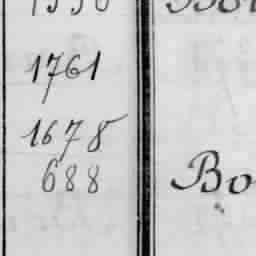 1761
1678
688 Bo